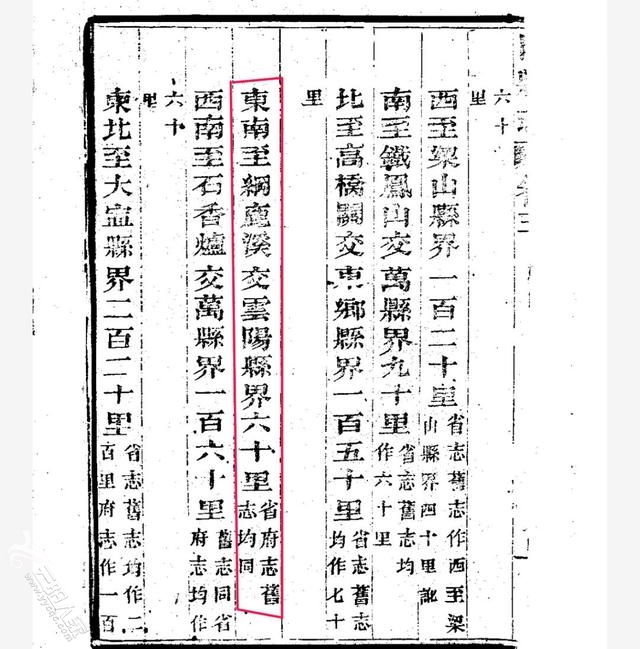 六十
里
西至梁山縣界一百二十里省志舊志作西至梁
山縣界四十里訛
南至鐵鳳山交萬縣界九十里省志舊志均
作六十里
北至高橋交東鄉縣界一百五十里省志舊志
均作七十
里
東南至綱鹿溪交雲陽縣界六十里省府志舊
志均同
西南至石香爐交萬縣界一百六十里舊志同省
府志均作
六十
里
東北至大寍縣界二百二十里省志舊志均作二
百里府志作一百